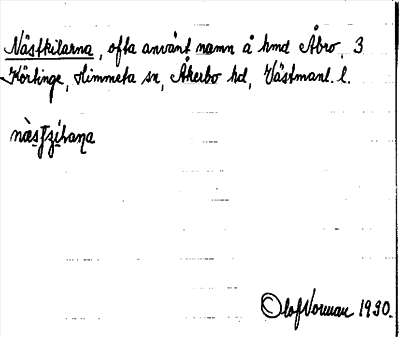 Nästkilarna, ofta använt namn å hmd Åbro, 3
Hörtinge, Himmeta sn, Åkerbo hd, Västmanl. l.
Olof Norman 1930.